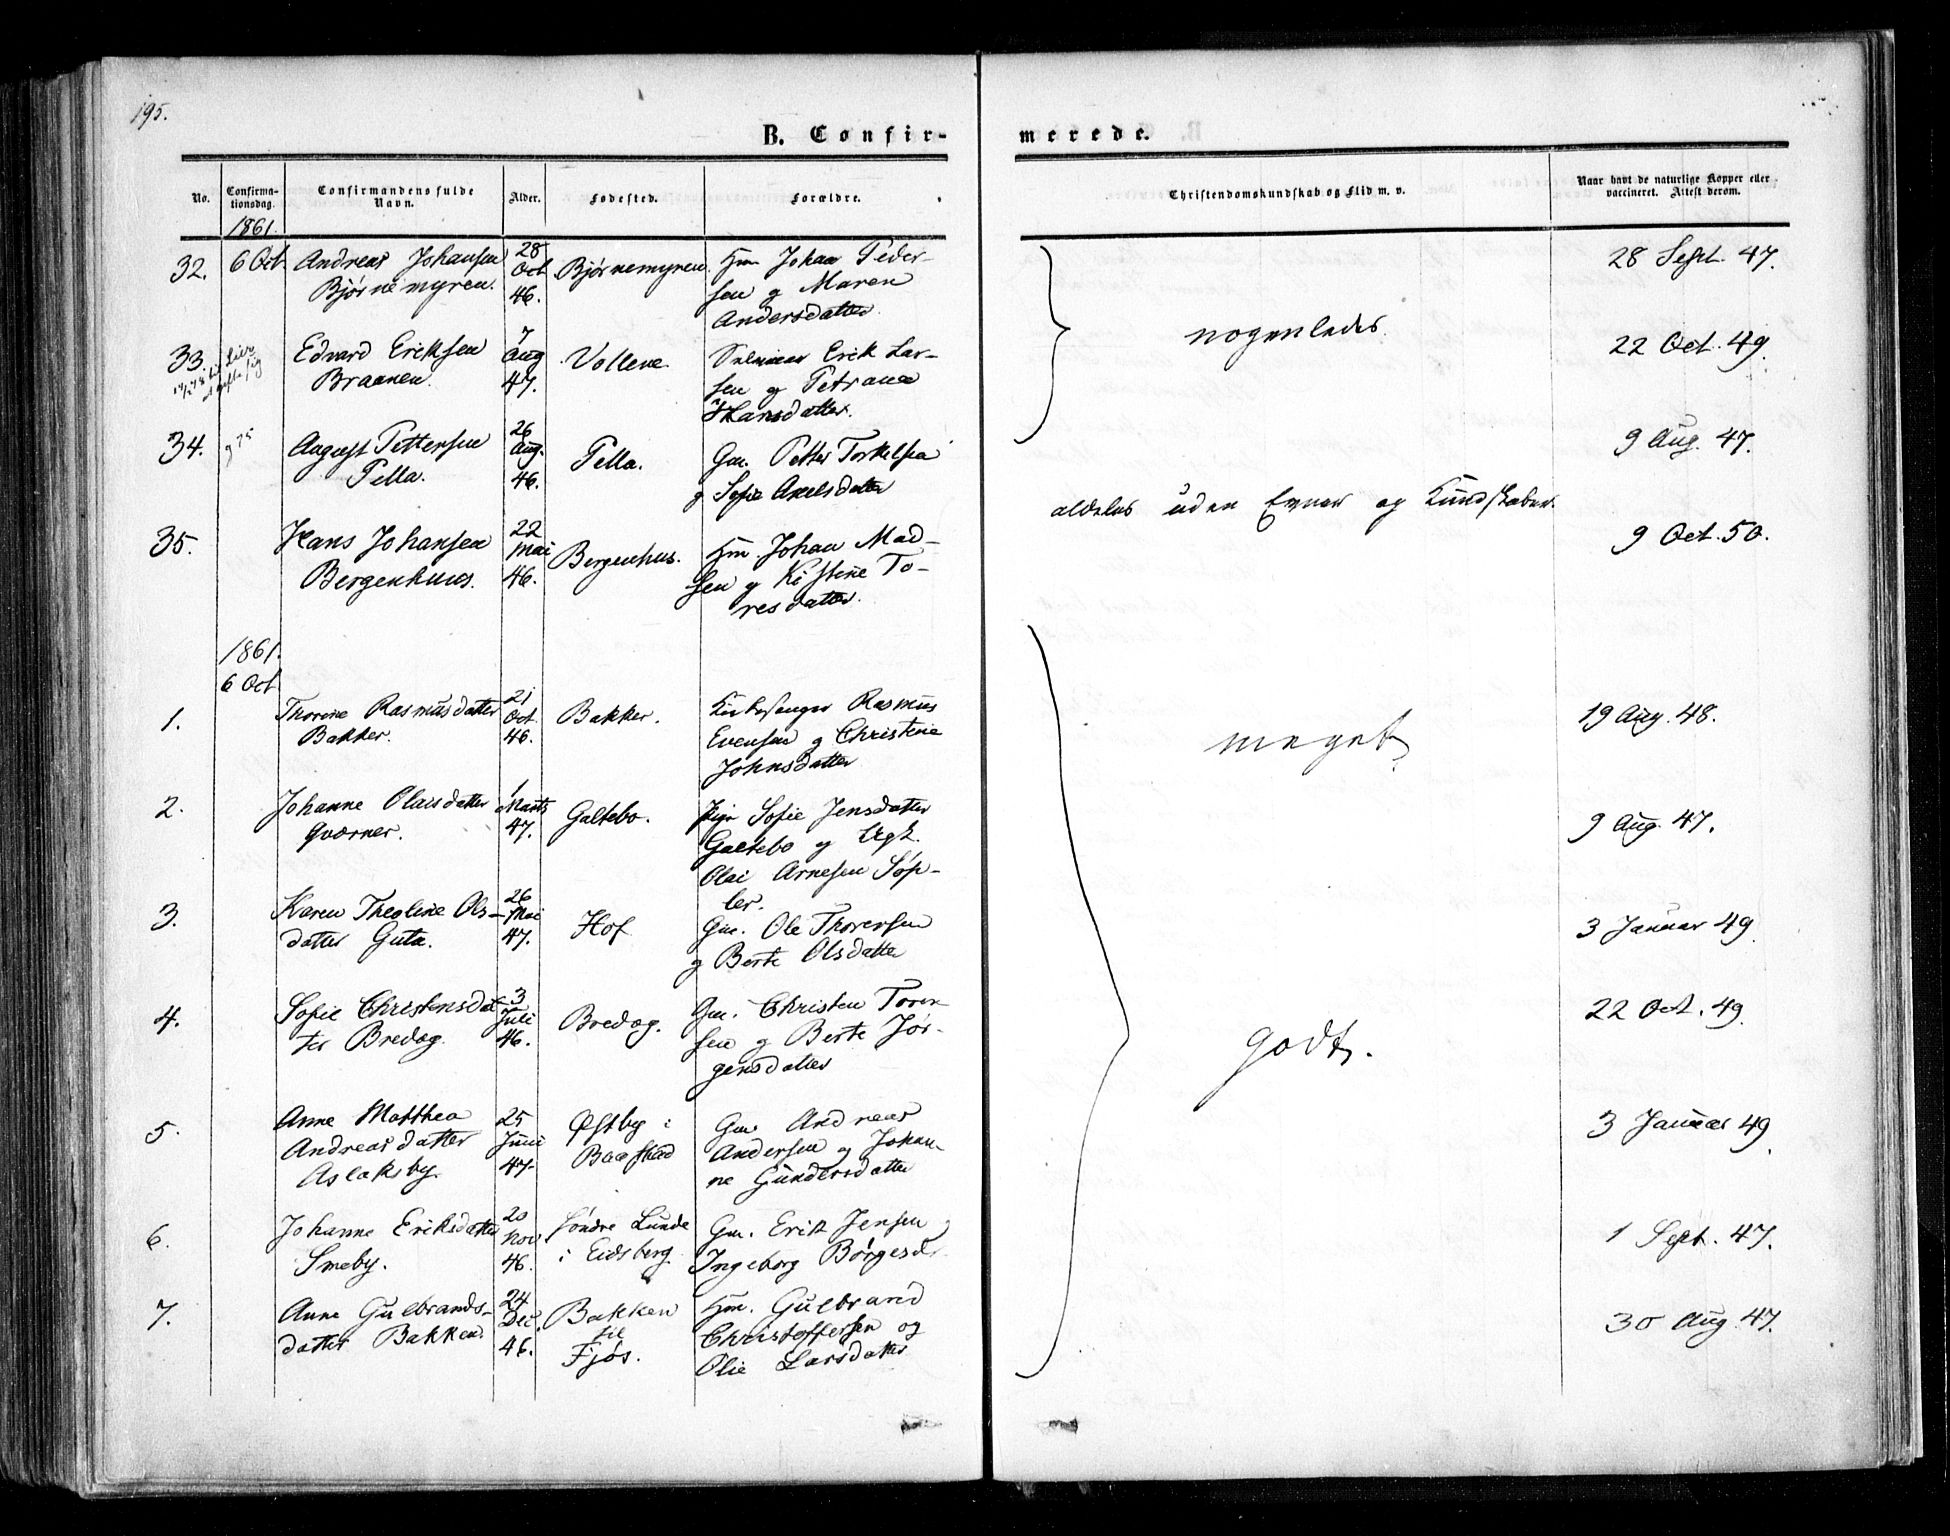 195.
B. Confir-
merede.
No.
Confirma-
tionsdag.
Confirmandens fulde
Navn.
Alder.
Fødested.
Forældre.
Christendomskundskab og Flid m. v.
Naar havt de naturlige Kopper eller
vaccineret. Attest derom.
1861.
32. 6 Oct Andreas Johansen 28 Bjørnemyren. Hm Johan Peder-
Bjørnemyren. Oct sen og Maren
46. Andersdatter
28 Sept. 47.
nogenledes.
33. Edvard Eriksen 7 Vollene Erik Lar-
Braanen. Aug sen og Petrana
47. Hansdatter.
22 Oct. 49.
34. August Pettersen 26 Pella. Gm. Petter Torkelsen
Pella. Aug. og Sofie Axelsdatter
46.
9 Aug. 47.
35. Hans Johansen 22 Bergenhus. Hm. Johan Mad-
Bergenhuus. Mai sen og Kistine To-
46. resdatter.
aldeles uden Evner og Kundskaber.
9 Oct. 50.
1861.
6 Oct
1. Thorine Rasmusdatter 21 Bakker. Kirkesanger Rasmus
Bakker. Oct. Evensen og Christine
46. Johnsdatter
meget
19 Aug. 48.
2. Johanne Olaisdatter 1 Galtebo. Pige Sofie Jensdatter
Qværner. Marts Galtebo og Ugk.
47. Olai Arnesen Søp-
ler.
9 Aug. 47.
3. Karen Theoline Ols- 26 Hof Gm. Ole Thoresen
datter Guta. Mai og Berte Olsdatter
47.
3 Januar 49.
4. Sofie Christensdat- 3 Bredag. Gm. Christen Toren-
ter Bredag. Juli sen og Berte Jør-
46. gensdatter
godt.
22 Oct. 49.
5. Anne Matthea 25 Østby i Gm. Andreas
Andreasdatter Juni Baastad Andersen og Johan-
Aslaksby. 47. ne Gundersdatter
3 Januar 49.
6. Johanne Eriksdatter 20 Søndre Lunde Gm. Erik Jensen og
Smeby. Nov i Eidsberg Ingeborg Børgesd.
46.
1 Sept. 47.
7. Anne Gulbrands- 24 Bakken Hm. Gulbrand
datter Bakken. Dec. til Christoffersen og
46. Fjøs. Olie Larsdatter
30 Aug. 47.